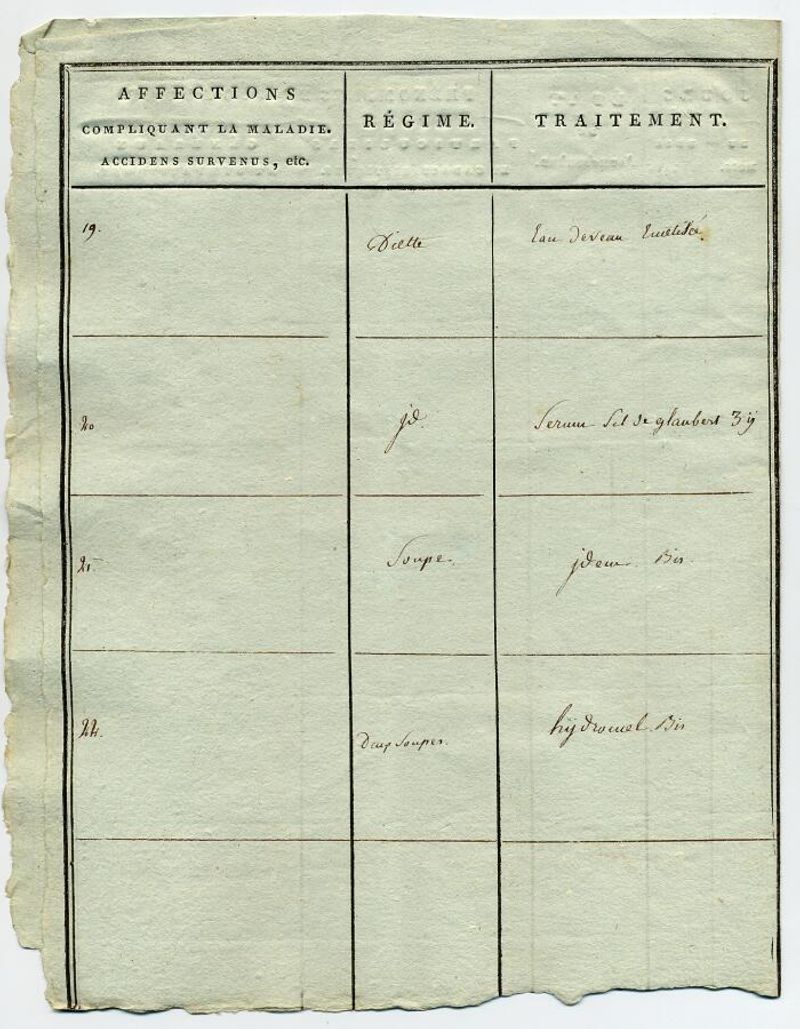 AFFECTIONS
COMPLIQUANT LA MALADIE.
ACCIDENS SURVENUS, etc.
RÉGIME.
TRAITEMENT.
19.
Diette
Eau de veau Emetisée.
20
jd.
Serum Sel de glaubert ʒ ij
21
Soupe.
jdem Bis
22.
Deux Soupes.
hydromel Bis